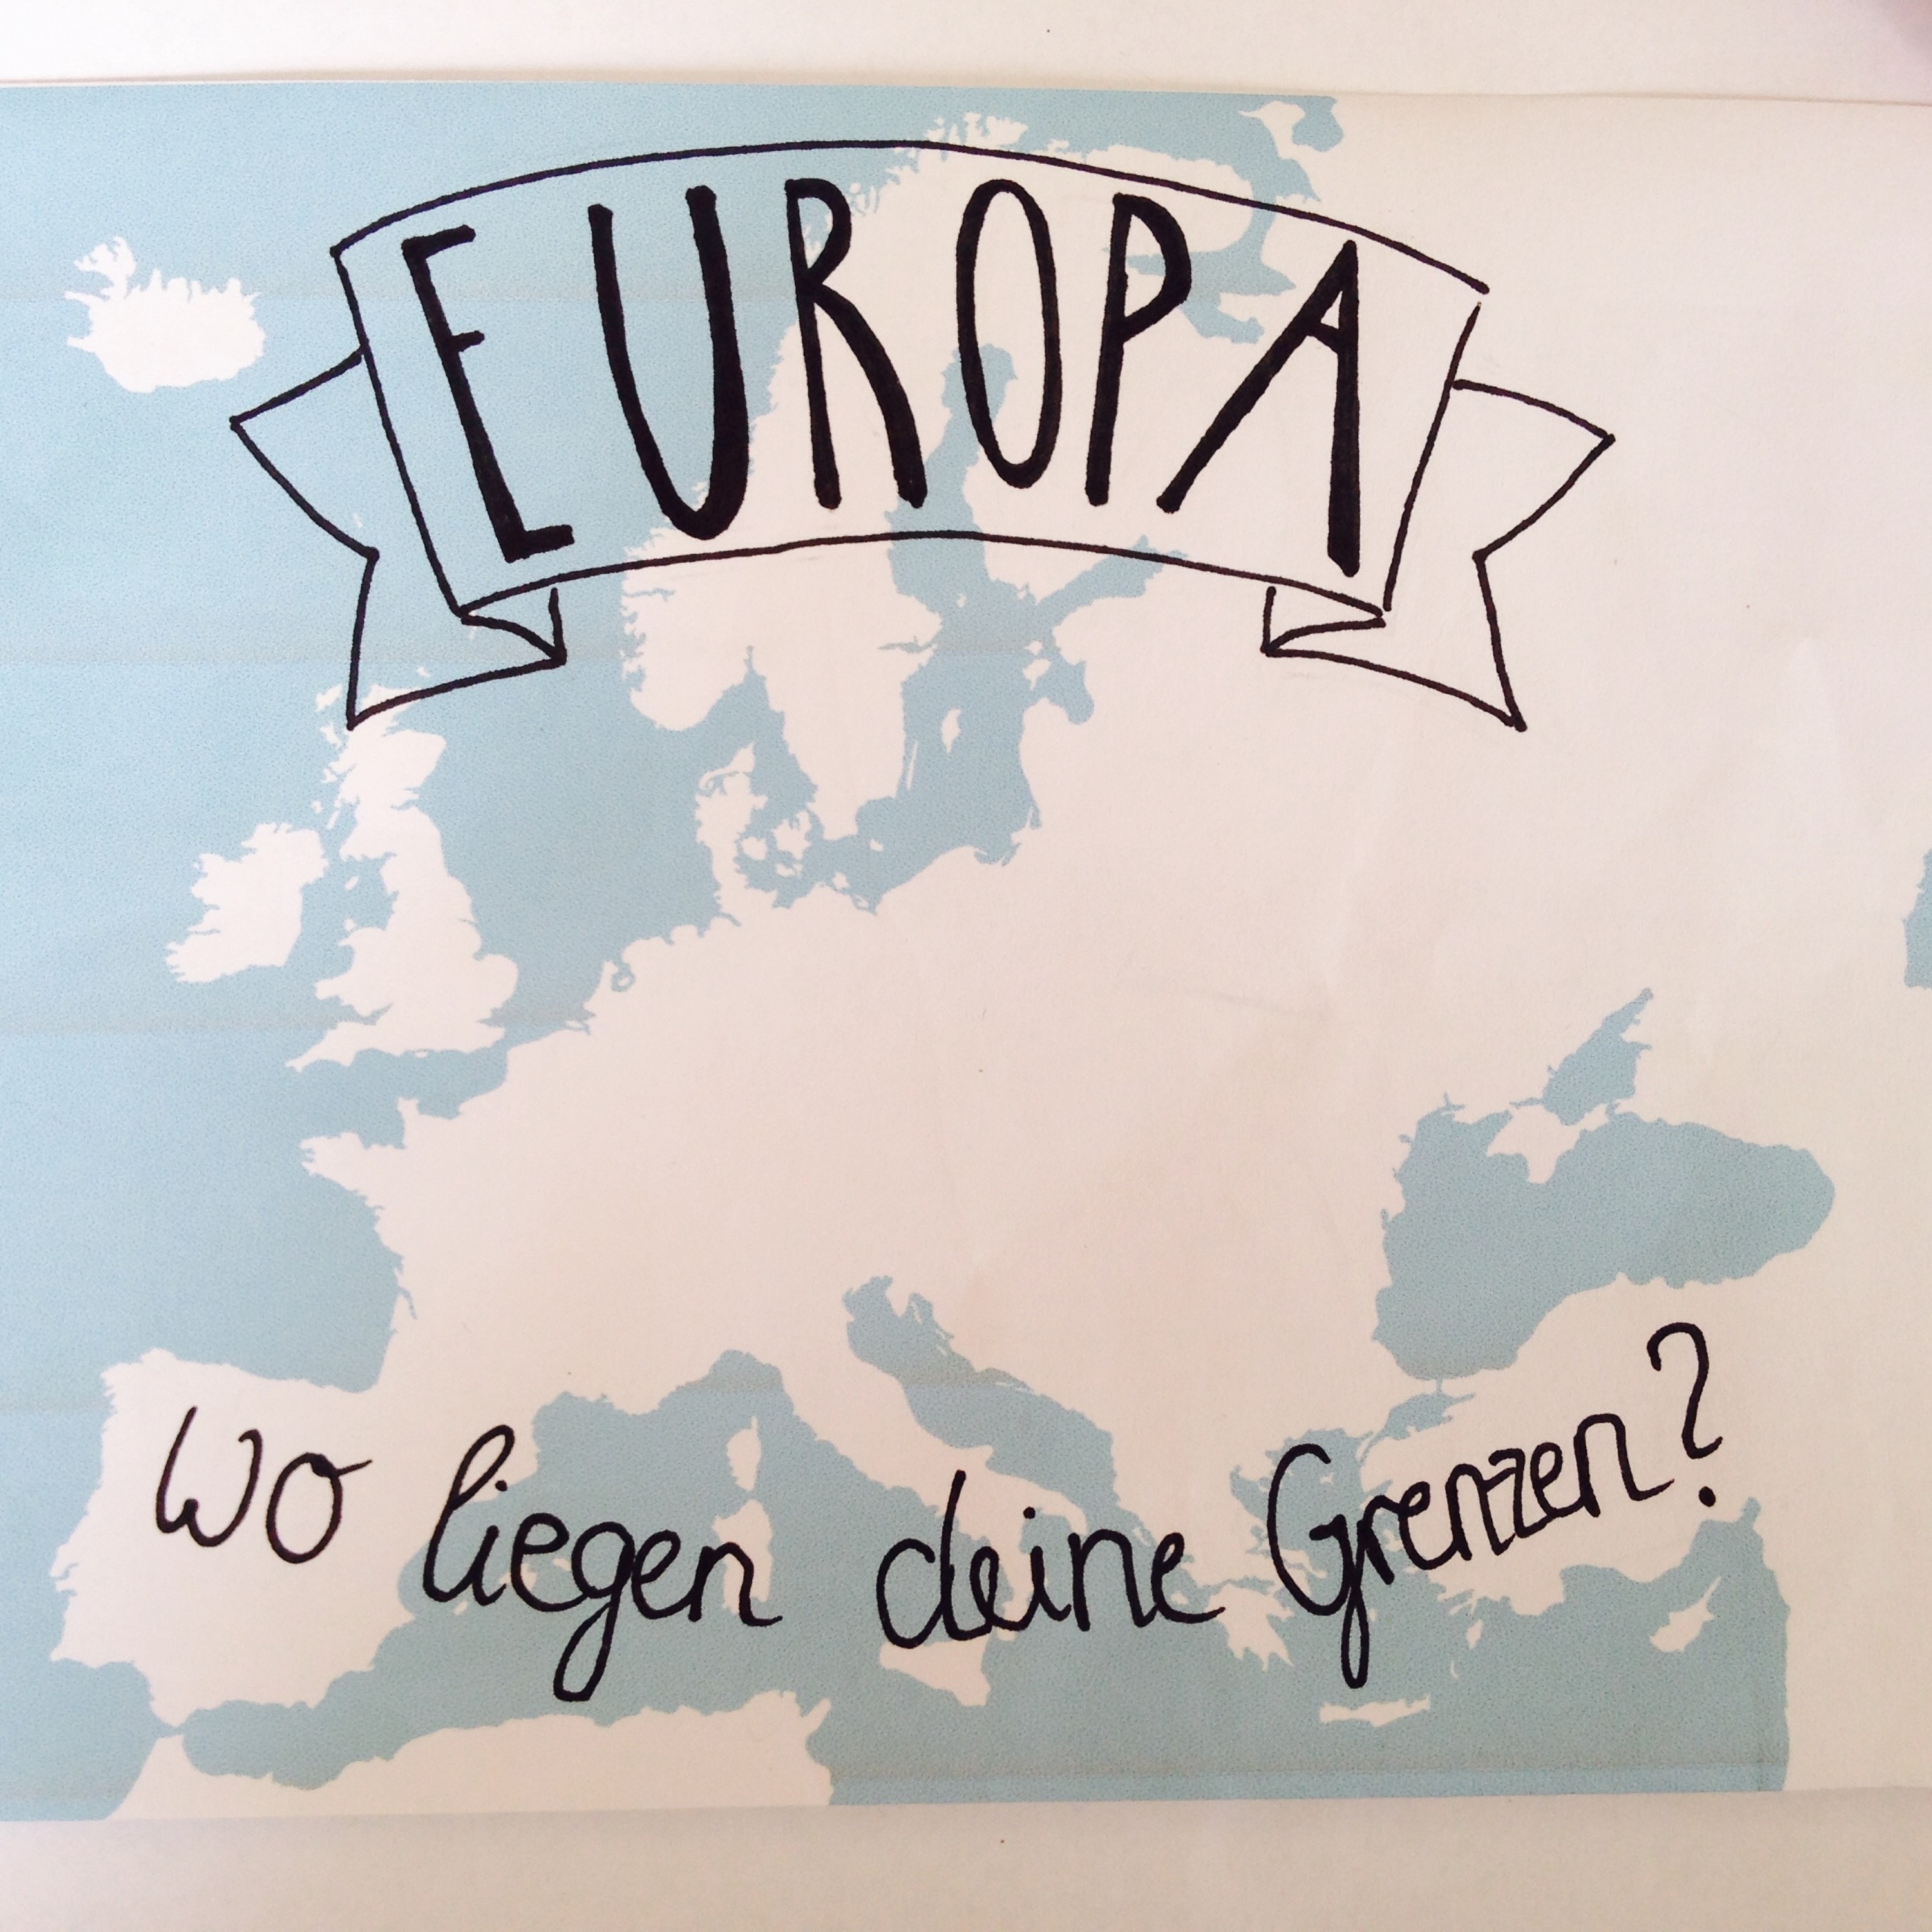 EUROPA
Wo liegen deine Grenzen?